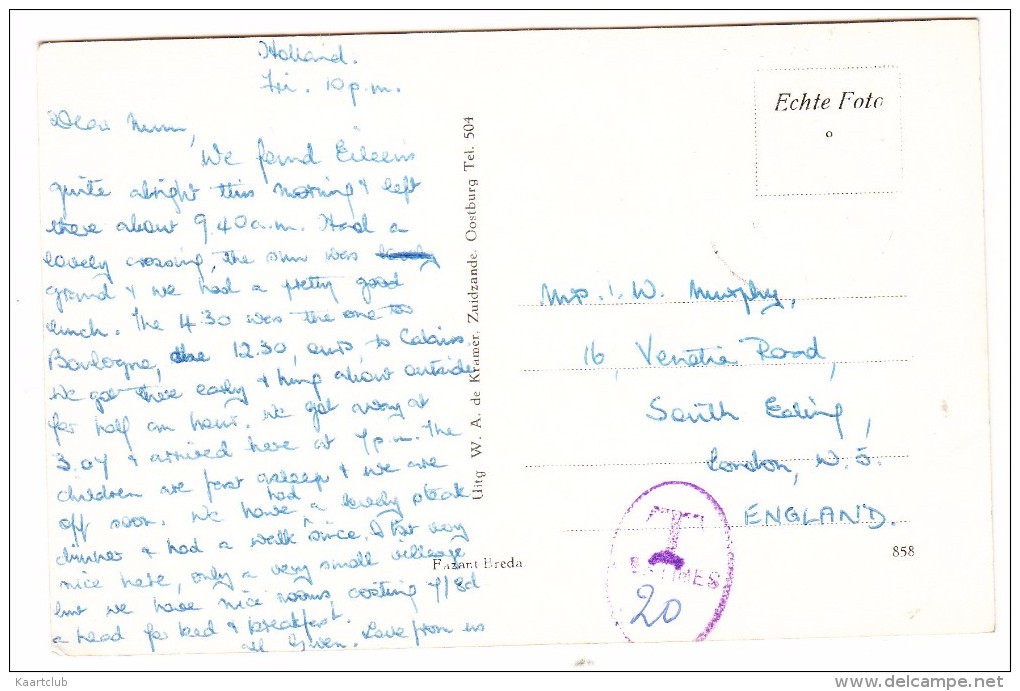 Holland.
Fri. 10 p.m.
Dear Mum,
We found Eileen's
quite alright this morning & left
there about 9.40 a.m. Had a
lovely crossing, the sun was
grand & we had a pretty good
lunch. The 4.30 was the one to
Boulogne, the 12.30, ours, to Calais
We got there early & hung about outside
for half an hour. We got away at
3.04 & arrived here at 7 p.m. The
children are fast asleep & we are
off soon. We have had a lovely steak
dinner & had a walk since. A very
nice here, only a very small village
but we have nice rooms costing 7/8d
a head for bed & breakfast.
Love from us
all Gwen.
Uitg W. A. de Kramer, Zuidzande. Oostburg Tel. 504
Fazant Breda
Echte Foto
Mrs. J. W. Murphy,
16, Venetia Road,
South Ealing,
London, W. 5.
ENGLAND.
858
T
CENTIMES
20
Kaartclub
delcampe.net